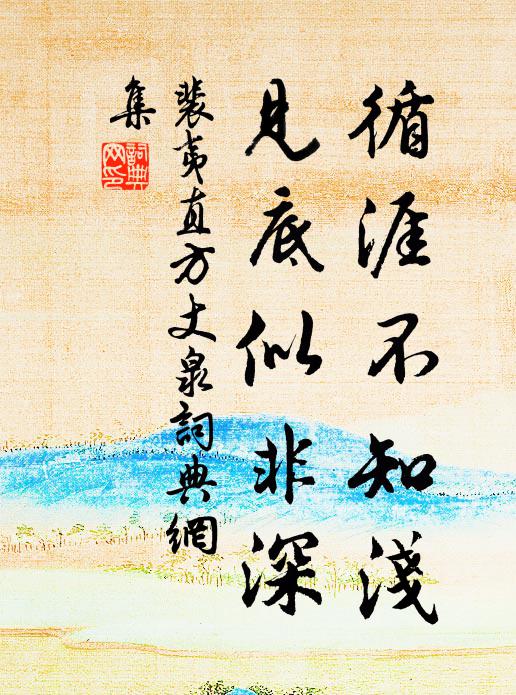 循涯不知淺
見底似非深
裴夷直方丈泉詞典網
集
詞典
网印